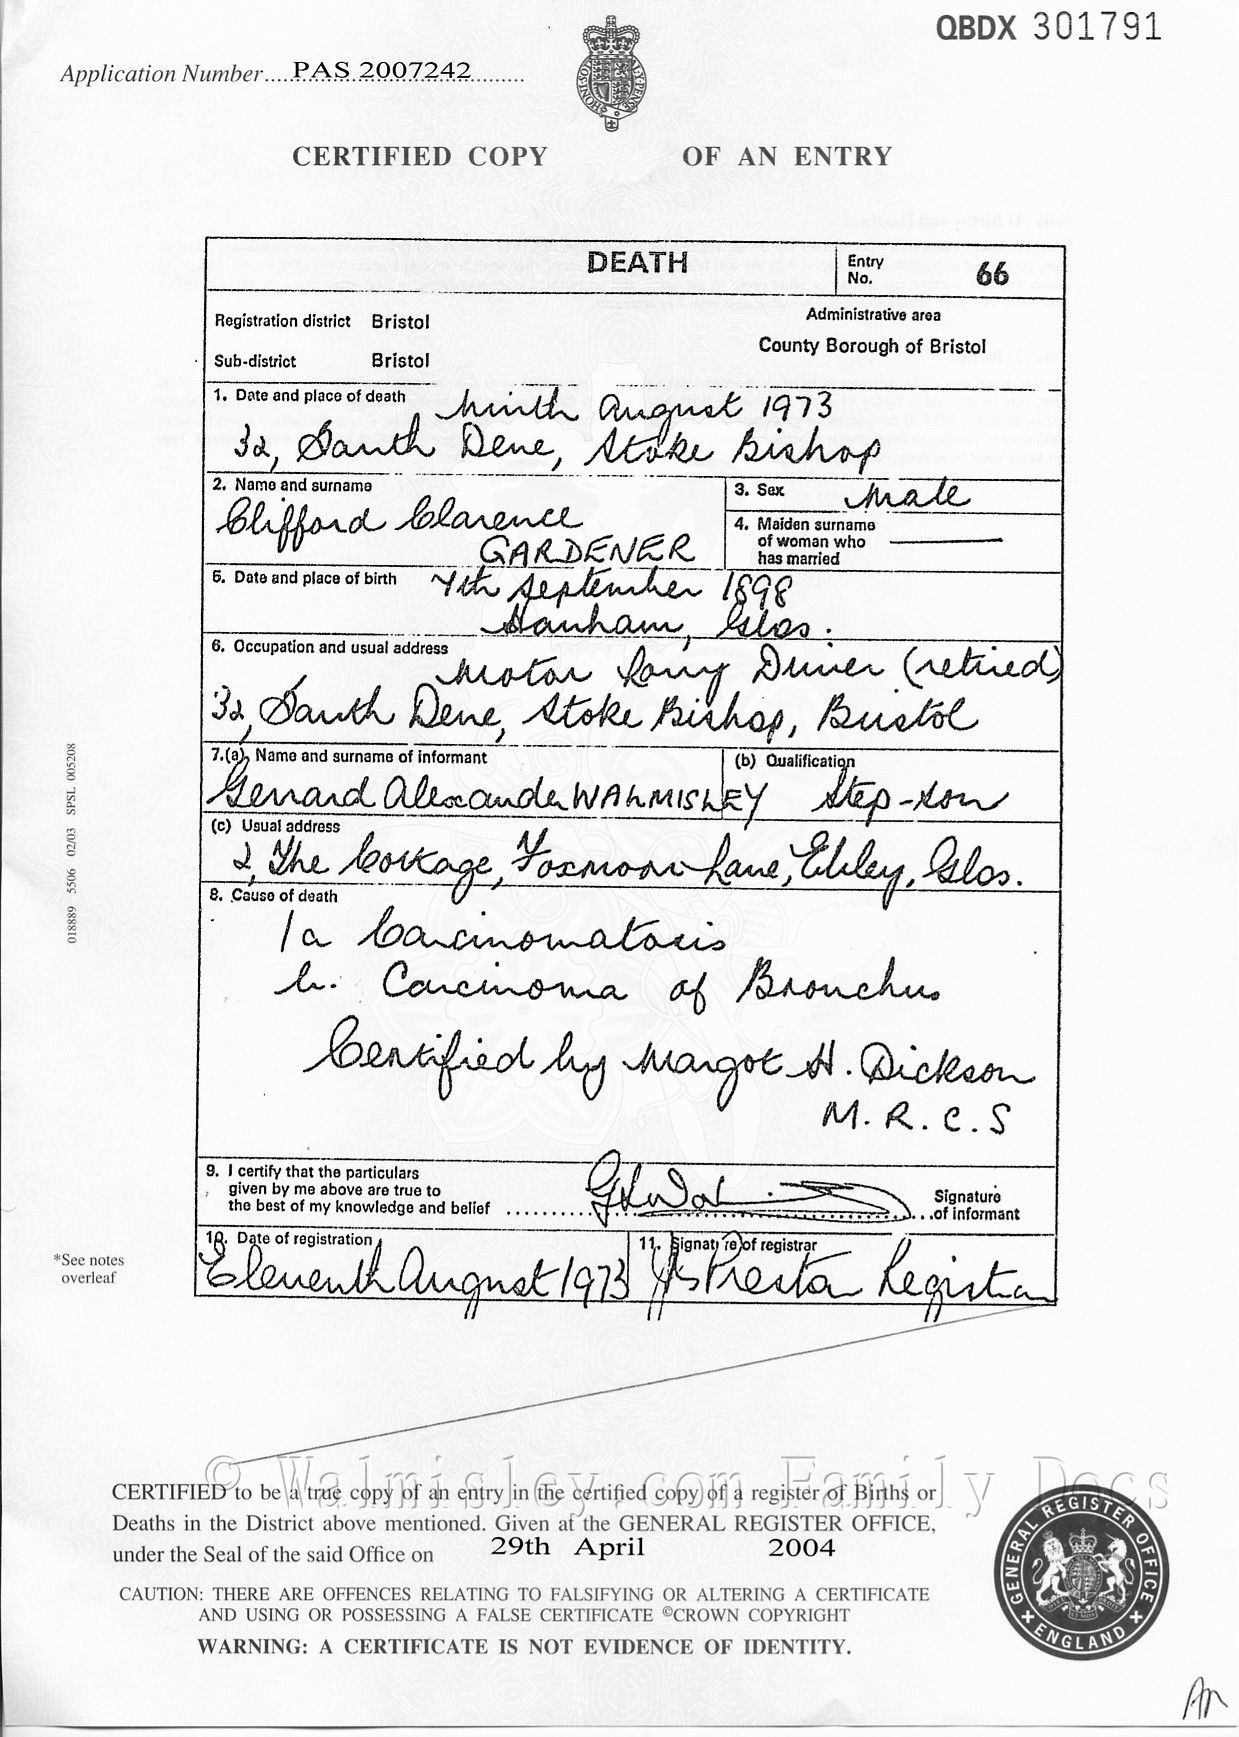 QBDX 301791
Application Number....PAS 2007242..........
HONI·SOI QUI MAL·Y·PENSE
CERTIFIED COPY OF AN ENTRY
DEATH
Entry No. 66
Registration district Bristol
Administrative area
Sub-district Bristol
County Borough of Bristol
1. Date and place of death Ninth August 1973
32, South Dene, Stoke Bishop
2. Name and surname
Clifford Clarence
GARDENER
3. Sex Male
4. Maiden surname
of woman who
has married
5. Date and place of birth 7th September 1898
Hanham, Glos.
6. Occupation and usual address
Motor Lorry Driver (retired)
32, South Dene, Stoke Bishop, Bristol
7.(a) Name and surname of informant
Gerrard Alexander WALMISLEY
(b) Qualification
Step-son
(c) Usual address
2, The Cottage, Foxmoor Lane, Ebley, Glos.
8. Cause of death
1a Carcinomatosis
b. Carcinoma of Bronchus
Certified by Margot H. Dickson
M.R.C.S
9. I certify that the particulars
given by me above are true to
the best of my knowledge and belief
Signature
of informant
10. Date of registration
Eleventh August 1973
11. Signature of registrar
Registrar
018889 5506 02/03 SPSL 005208
*See notes
overleaf
© Walmisley.com Family Docs
CERTIFIED to be a true copy of an entry in the certified copy of a register of Births or
Deaths in the District above mentioned. Given at the GENERAL REGISTER OFFICE,
under the Seal of the said Office on 29th April 2004
CAUTION: THERE ARE OFFENCES RELATING TO FALSIFYING OR ALTERING A CERTIFICATE
AND USING OR POSSESSING A FALSE CERTIFICATE ©CROWN COPYRIGHT
WARNING: A CERTIFICATE IS NOT EVIDENCE OF IDENTITY.
GENERAL REGISTER OFFICE
ENGLAND